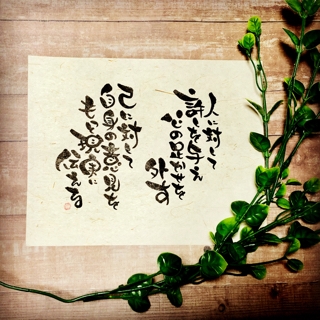 人に対して
許しを与え
心の足かせを
外す
己に対して
自身の意見を
もち現実に
伝える